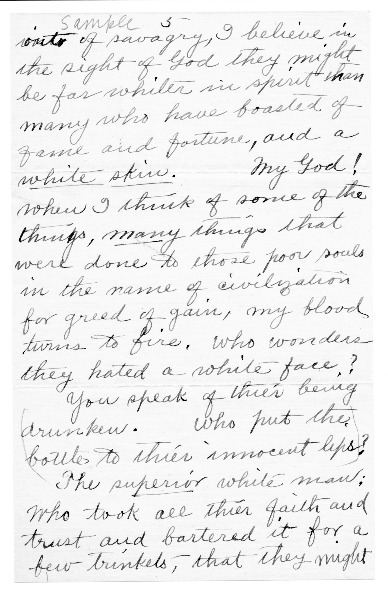 Sample 5
of savagry, I believe in
the sight of God they might
be far whiter in spirit than
many who have boasted of
fame and fortune, and a
white skin. My God!
when I think of some of the
things, many things that
were done to those poor souls
in the name of civilization
for greed of gain, my blood
turns to fire. Who wonders
they hated a white face?
You speak of thier being
drunken. (Who put the
bottles to thier innocent lips?)
The superior white man;
Who took all thier faith and
trust and bartered it for a
few trinkets, that they might